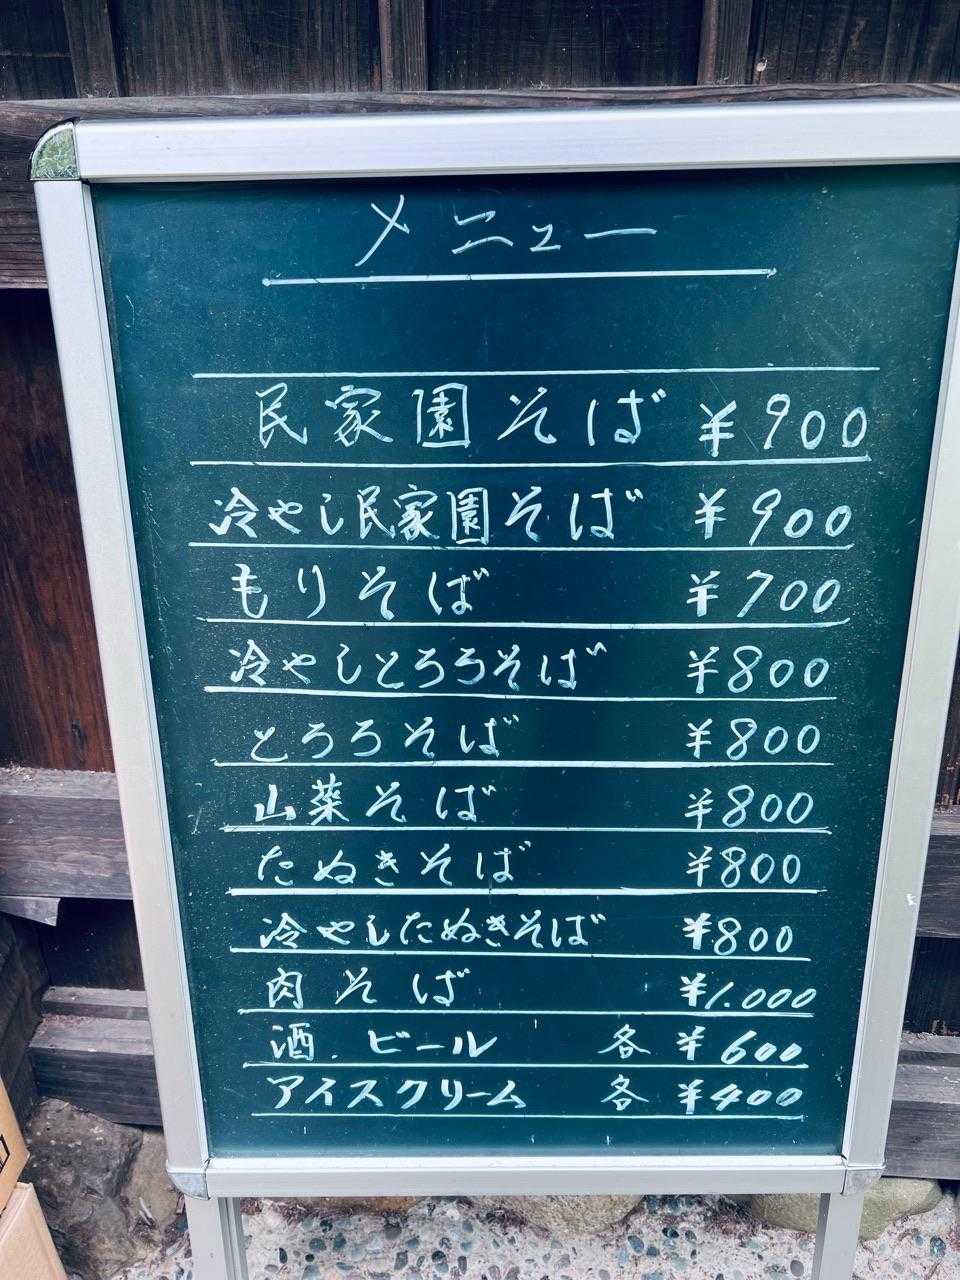 メニュー
民家園そば ¥900
冷やし民家園そば ¥900
もりそば ¥700
冷やしとろろそば ¥800
とろろそば ¥800
山菜そば ¥800
たぬきそば ¥800
冷やしたぬきそば ¥800
肉そば ¥1.000
酒.ビール 各 ¥600
アイスクリーム 各 ¥400